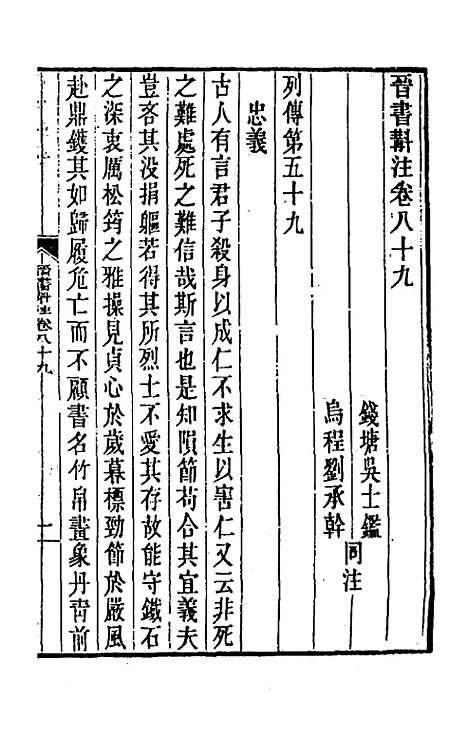 晉書斠注卷八十九
錢塘吳士鑑
烏程劉承幹
同注
列傳第五十九
忠義
古人有言君子殺身以成仁不求生以害仁又云非死
之難處死之難信哉斯言也是知隕節苟合其宜義夫
豈吝其沒捐軀若得其所烈士不愛其存故能守鐵石
之深衷厲松筠之雅操見貞心於歲暮標勁節於嚴風
赴鼎鑊其如歸履危亡而不顧書名竹帛畫象丹靑前
晉書斠注卷八十九
一